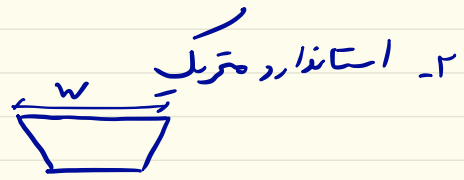 ۲- استاندارد متریک
W